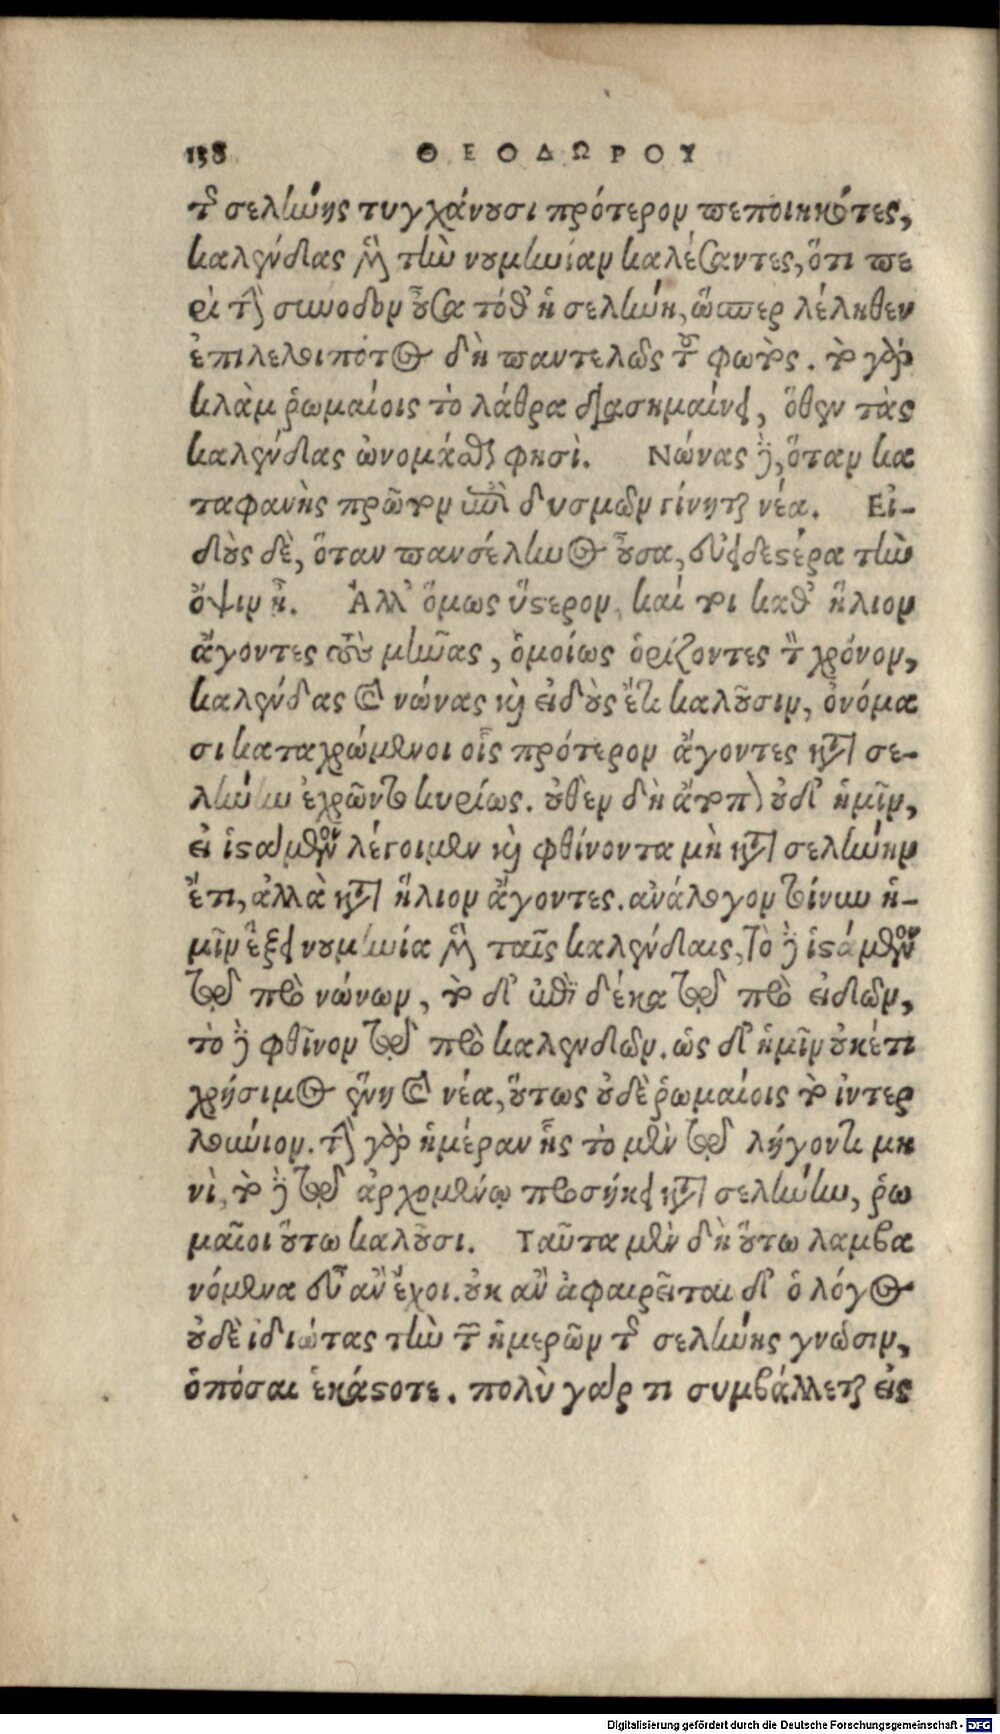 158 ΘΕΟΔΩΡΟΥ
τῆς σελήνης τυγχάνουσι πρότερον πεποιηκότες,
καλένδας μὲν τὴν νουμηνίαν καλέσαντες, ὅτι πε
ρὶ τὴν σύνοδον οὖσα τόθ' ἡ σελήνη, ὥσπερ λέληθεν
ἐπιλελοιπότος δὴ παντελῶς τοῦ φωτός. τὸ γὰρ
κλὰμ ῥωμαίοις τὸ λάθρα διασημαίνει, ὅθεν τὰς
καλένδας ὠνομάσθαι φησὶ. Νώνας δὲ, ὅταν κα
ταφανὴς πρῶτον ἐπὶ δυσμῶν γίνηται νέα. Εἰ-
δοὺς δὲ, ὅταν πανσέληνος οὖσα, εὐειδεστέρα τὴν
ὄψιν ᾖ. Ἀλλ' ὅμως ὕστερον, καί τοι καθ' ἥλιον
ἄγοντες τοὺς μῆνας, ὁμοίως ὁρίζοντες τὸν χρόνον,
καλένδας καὶ νώνας καὶ εἰδοὺς ἔτι καλοῦσιν, ὀνόμα
σι καταχρώμενοι οἷς πρότερον ἄγοντες κατὰ σε-
λήνην ἐχρῶντο κυρίως. οὐθὲν δὴ ἄτοπον οὐδ' ἡμῖν,
εἰ ἱσαμένου λέγοιμεν καὶ φθίνοντα μὴ κατὰ σελήνην
ἔτι, ἀλλὰ κατὰ ἥλιον ἄγοντες. ἀνάλογον τοίνυν ἡ-
μῖν ἕξει νουμηνία μὲν ταῖς καλένδαις, τὸ δὲ ἱσαμένου
τῷ πρὸ νώνων, τὸ δ' ἐπὶ δέκα τῷ πρὸ εἰδῶν,
τὸ δὲ φθῖνον τῷ πρὸ καλενδῶν. ὡς δ' ἡμῖν οὐκέτι
χρήσιμος ἕνη καὶ νέα, οὕτως οὐδὲ ῥωμαίοις τὸ ἰντερ
λούνιον. τὴν γὰρ ἡμέραν ἧς τὸ μὲν τῷ λήγοντι μη
νὶ, τὸ δὲ τῷ ἀρχομένῳ προσήκει κατὰ σελήνην, ῥω
μαῖοι οὕτω καλοῦσι. Ταῦτα μὲν δὴ οὕτω λαμβα
νόμενα εὖ ἂν ἔχοι. οὐκ ἂν ἀφαιρεῖται δ' ὁ λόγος
οὐδὲ ἰδιώτας τὴν τῶν ἡμερῶν τῆς σελήνης γνῶσιν,
ὁπόσαι ἑκάστοτε. πολὺ γάρ τι συμβάλλεται εἰς
Digitalisierung gefördert durch die Deutsche Forschungsgemeinschaft - DFG